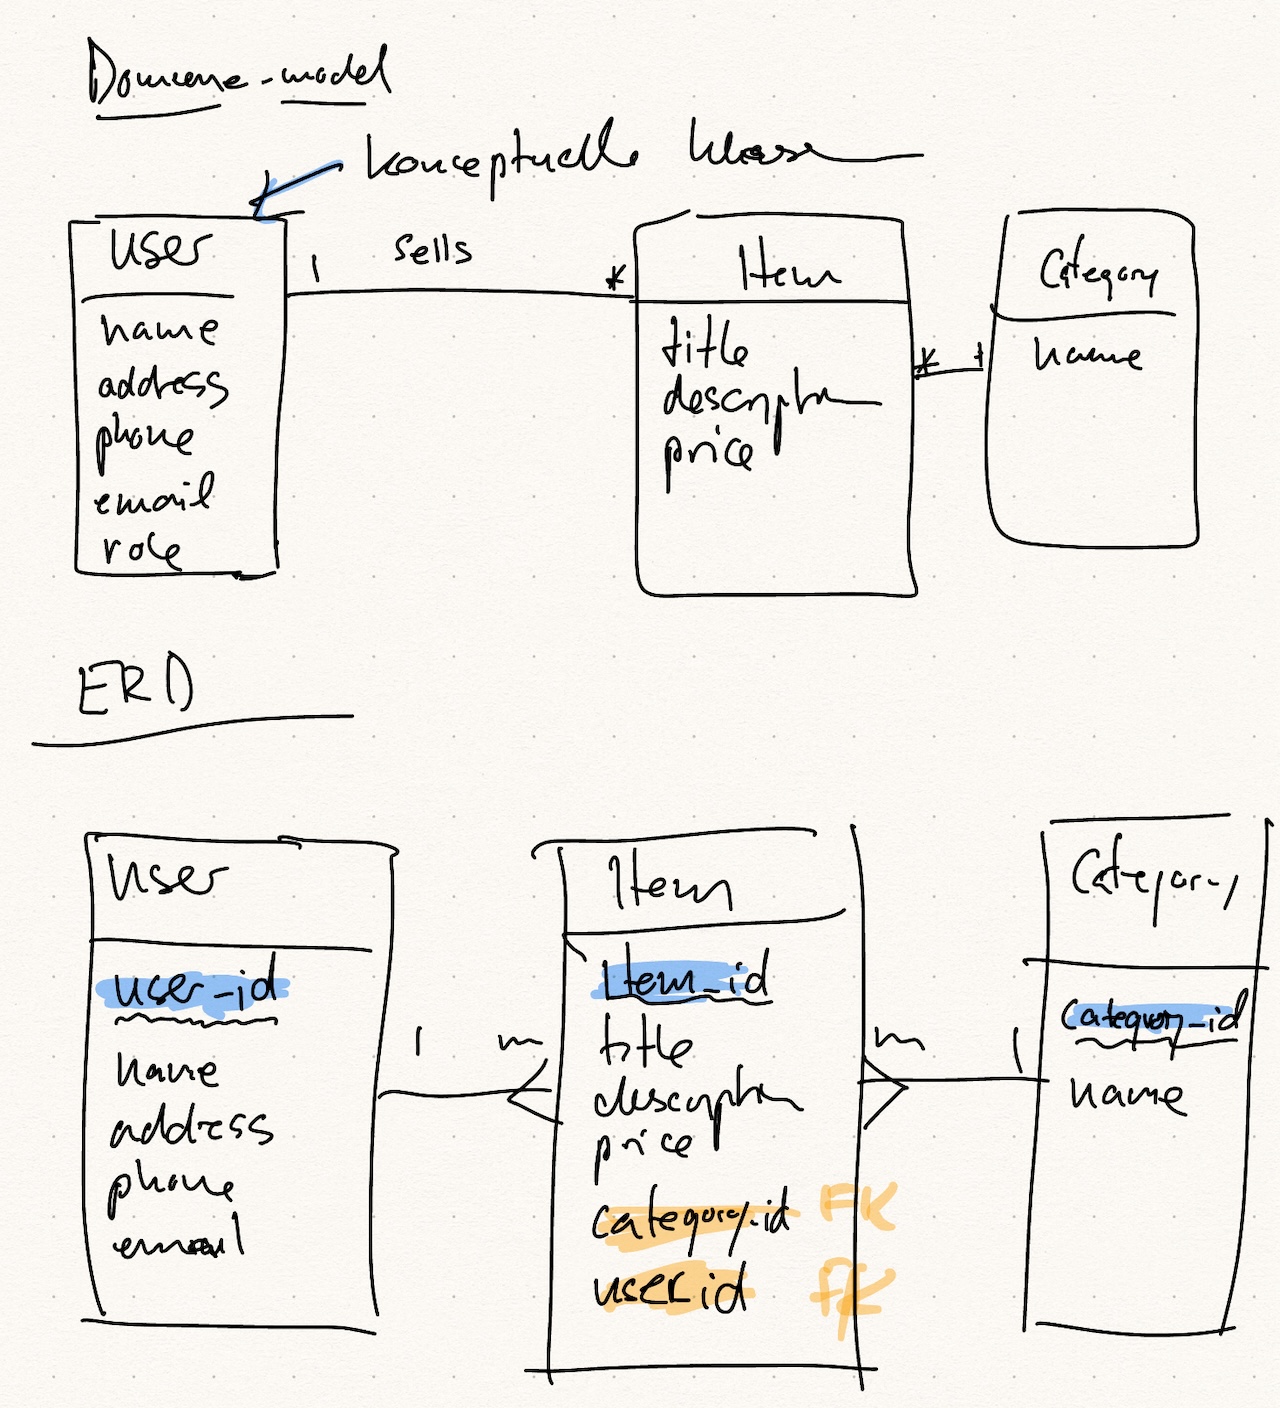 Domæne-model
konceptuelle klasse
user
name
address
phone
email
role
1 sells *
Item
title
description
price
* 1
Category
name
ERD
user
user_id
name
address
phone
email
1 m
Item
Item_id
title
description
price
category_id FK
user_id FK
m 1
Category
category_id
name